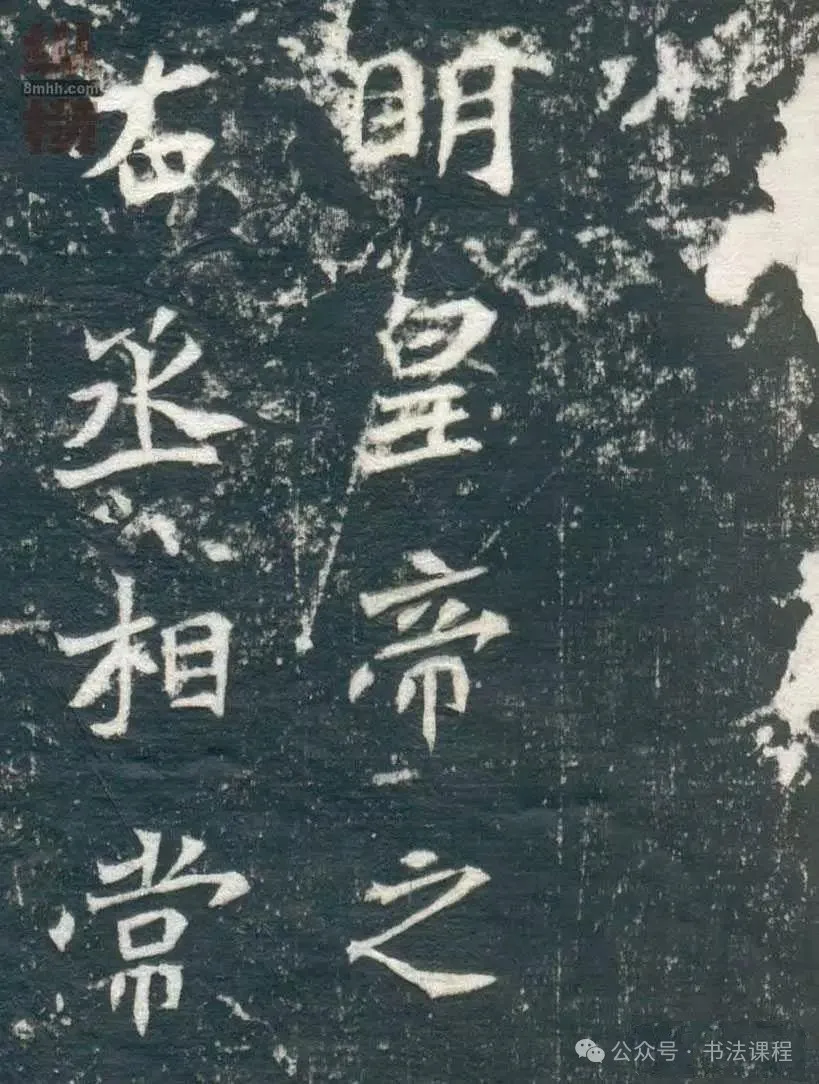 眀皇帝之
右丞相常
8mhh.com
公众号 · 书法课程